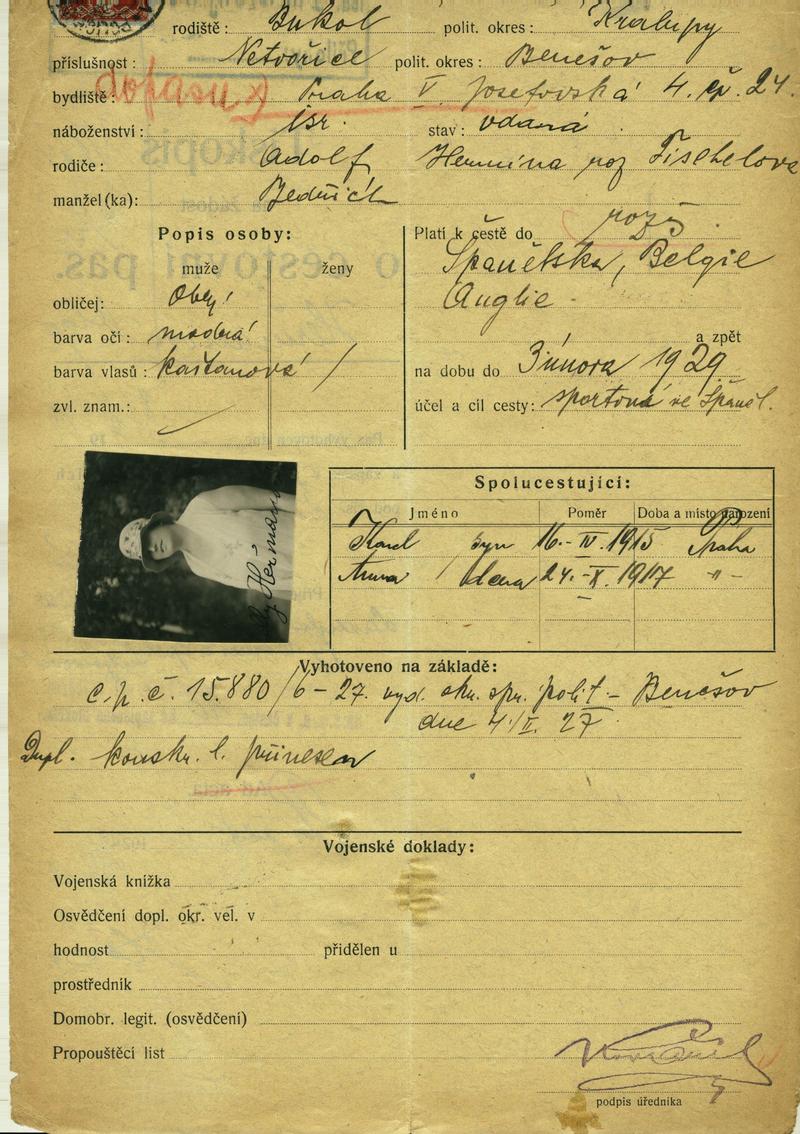 rodiště: Bukol polit. okres: Kralupy
příslušnost: Netvořice polit. okres: Benešov
dopasu
bydliště: Praha V Josefovská 4. čp. 24.
náboženství: isr. stav: vdaná
rodiče: Adolf Hermína roz Fischelova
manžel(ka): Bedřich
Popis osoby:
muže ženy
obličej: Oblý
barva očí: modrá
barva vlasů: kaštanová
zvl. znam.:
Platí k cestě do
Španělska, Belgie
Anglie
a zpět
na dobu do 3 února 1929
účel a cíl cesty: sportovná ve Španěl.
Spolucestující:
Jméno Poměr Doba a místo narození
Karel syn 16.-IV.1915 Praha
Anna dcera 24.-X.1917 -"-
Heřman
Vyhotoveno na základě:
c.p.č. 15.880/6-27. vyd. okr. spr. polit - Benešov
dne 4/II. 27
Dupl. konskr. l. přinesen
Vojenské doklady:
Vojenská knížka
Osvědčení dopl. okr. vel. v
hodnost přidělen u
prostředník
Domobr. legit. (osvědčení)
Propouštěcí list
podpis úředníka